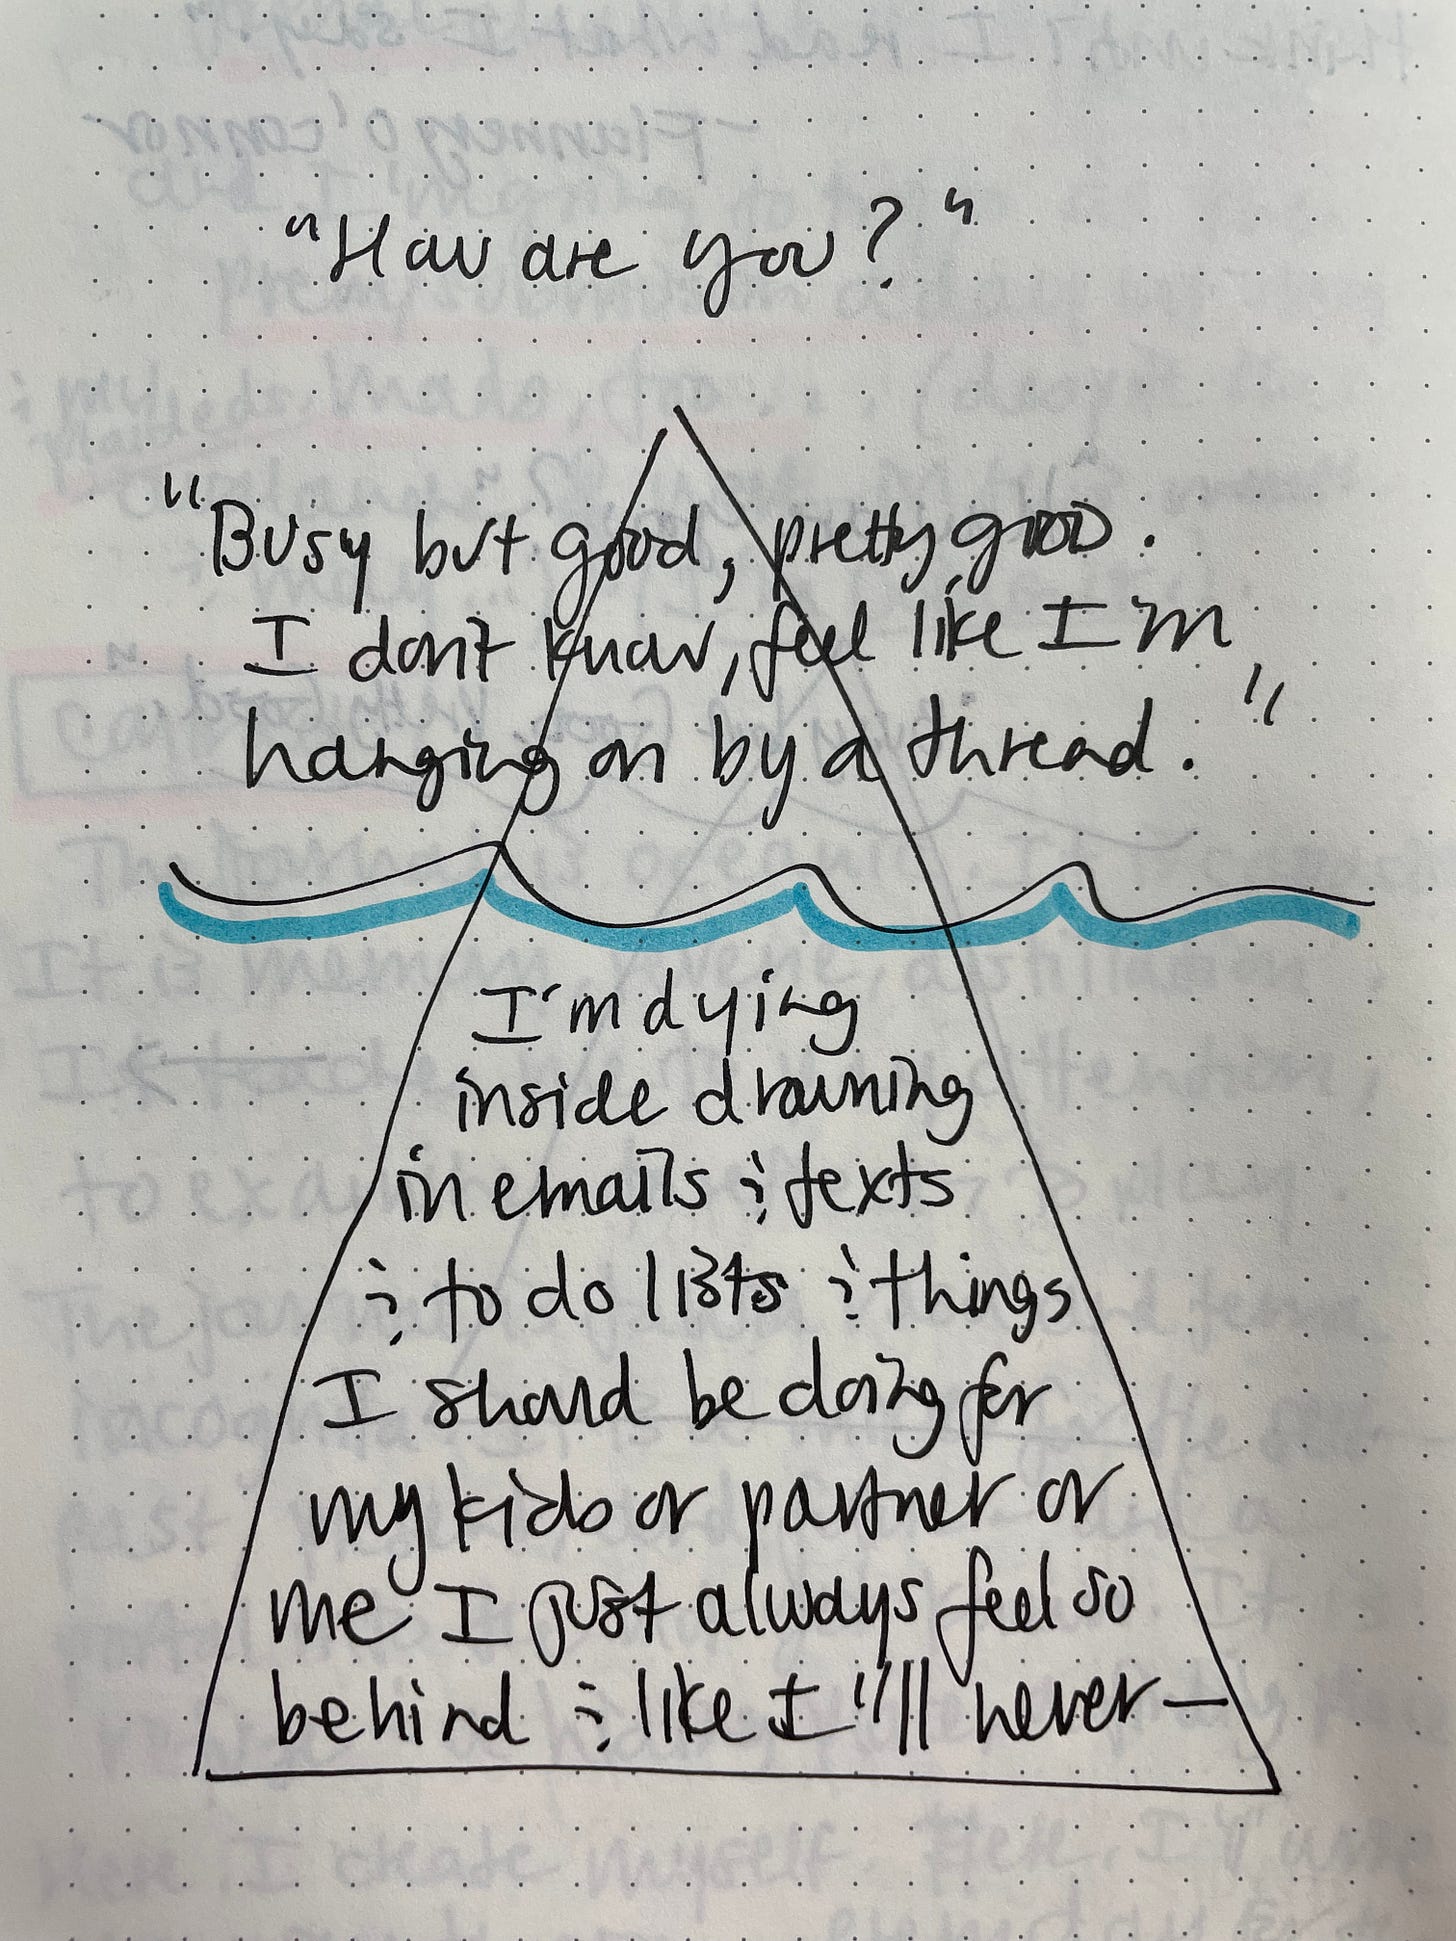 "How are you?"
"Busy but good, pretty good.
I don't know, feel like I'm
hanging on by a thread."
I'm dying
inside drowning
in emails & texts
& to do lists & things
I should be doing for
my kids or partner or
me I just always feel so
behind & like I'll never—